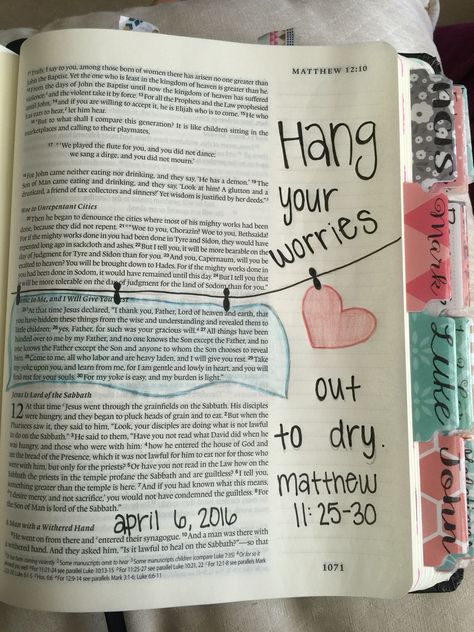 MATTHEW 12:10
¹¹Truly, I say to you, among those born of women there has arisen no one greater than
John the Baptist. Yet the one who is least in the kingdom of heaven is greater than he.
¹²From the days of John the Baptist until now the kingdom of heaven has suffered
violence, and the violent take it by force. ¹³For all the Prophets and the Law prophesied
until John, ¹⁴and if you are willing to accept it, he is Elijah who is to come. ¹⁵He who
has ears to hear, let him hear.
¹⁶"But to what shall I compare this generation? It is like children sitting in the
marketplaces and calling to their playmates,
¹⁷"'We played the flute for you, and you did not dance;
we sang a dirge, and you did not mourn.'
¹⁸For John came neither eating nor drinking, and they say, 'He has a demon.' ¹⁹The
Son of Man came eating and drinking, and they say, 'Look at him! A glutton and a
drunkard, a friend of tax collectors and sinners!' Yet wisdom is justified by her deeds."
Woe to Unrepentant Cities
²⁰Then he began to denounce the cities where most of his mighty works had been
done, because they did not repent. ²¹"Woe to you, Chorazin! Woe to you, Bethsaida!
For if the mighty works done in you had been done in Tyre and Sidon, they would have
repented long ago in sackcloth and ashes. ²²But I tell you, it will be more bearable on the
day of judgment for Tyre and Sidon than for you. ²³And you, Capernaum, will you be
exalted to heaven? You will be brought down to Hades. For if the mighty works done in
you had been done in Sodom, it would have remained until this day. ²⁴But I tell you that
it will be more tolerable on the day of judgment for the land of Sodom than for you."
Come to Me, and I Will Give You Rest
²⁵At that time Jesus declared, "I thank you, Father, Lord of heaven and earth, that
you have hidden these things from the wise and understanding and revealed them to
little children; ²⁶yes, Father, for such was your gracious will. ²⁷All things have been
handed over to me by my Father, and no one knows the Son except the Father, and no
one knows the Father except the Son and anyone to whom the Son chooses to reveal
him. ²⁸Come to me, all who labor and are heavy laden, and I will give you rest. ²⁹Take
my yoke upon you, and learn from me, for I am gentle and lowly in heart, and you will
find rest for your souls. ³⁰For my yoke is easy, and my burden is light."
Jesus Is Lord of the Sabbath
12 At that time Jesus went through the grainfields on the Sabbath. His disciples
were hungry, and they began to pluck heads of grain and to eat. ²But when the
Pharisees saw it, they said to him, "Look, your disciples are doing what is not lawful
to do on the Sabbath." ³He said to them, "Have you not read what David did when he
was hungry, and those who were with him: ⁴how he entered the house of God and
ate the bread of the Presence, which it was not lawful for him to eat nor for those who
were with him, but only for the priests? ⁵Or have you not read in the Law how on the
Sabbath the priests in the temple profane the Sabbath and are guiltless? ⁶I tell you,
something greater than the temple is here. ⁷And if you had known what this means,
'I desire mercy, and not sacrifice,' you would not have condemned the guiltless. ⁸For
the Son of Man is lord of the Sabbath."
A Man with a Withered Hand
⁹He went on from there and entered their synagogue. ¹⁰And a man was there with
a withered hand. And they asked him, "Is it lawful to heal on the Sabbath?"—so that
1071
Hang
your
worries
out
to dry.
matthew
11:25-30
april 6, 2016
Mark
Luke
John